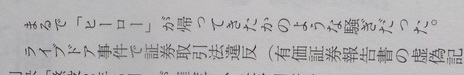 まるで「ヒーロー」が帰ってきたかのような騒ぎだった。
ライブドア事件で証券取引法違反（有価証券報告書の虚偽記